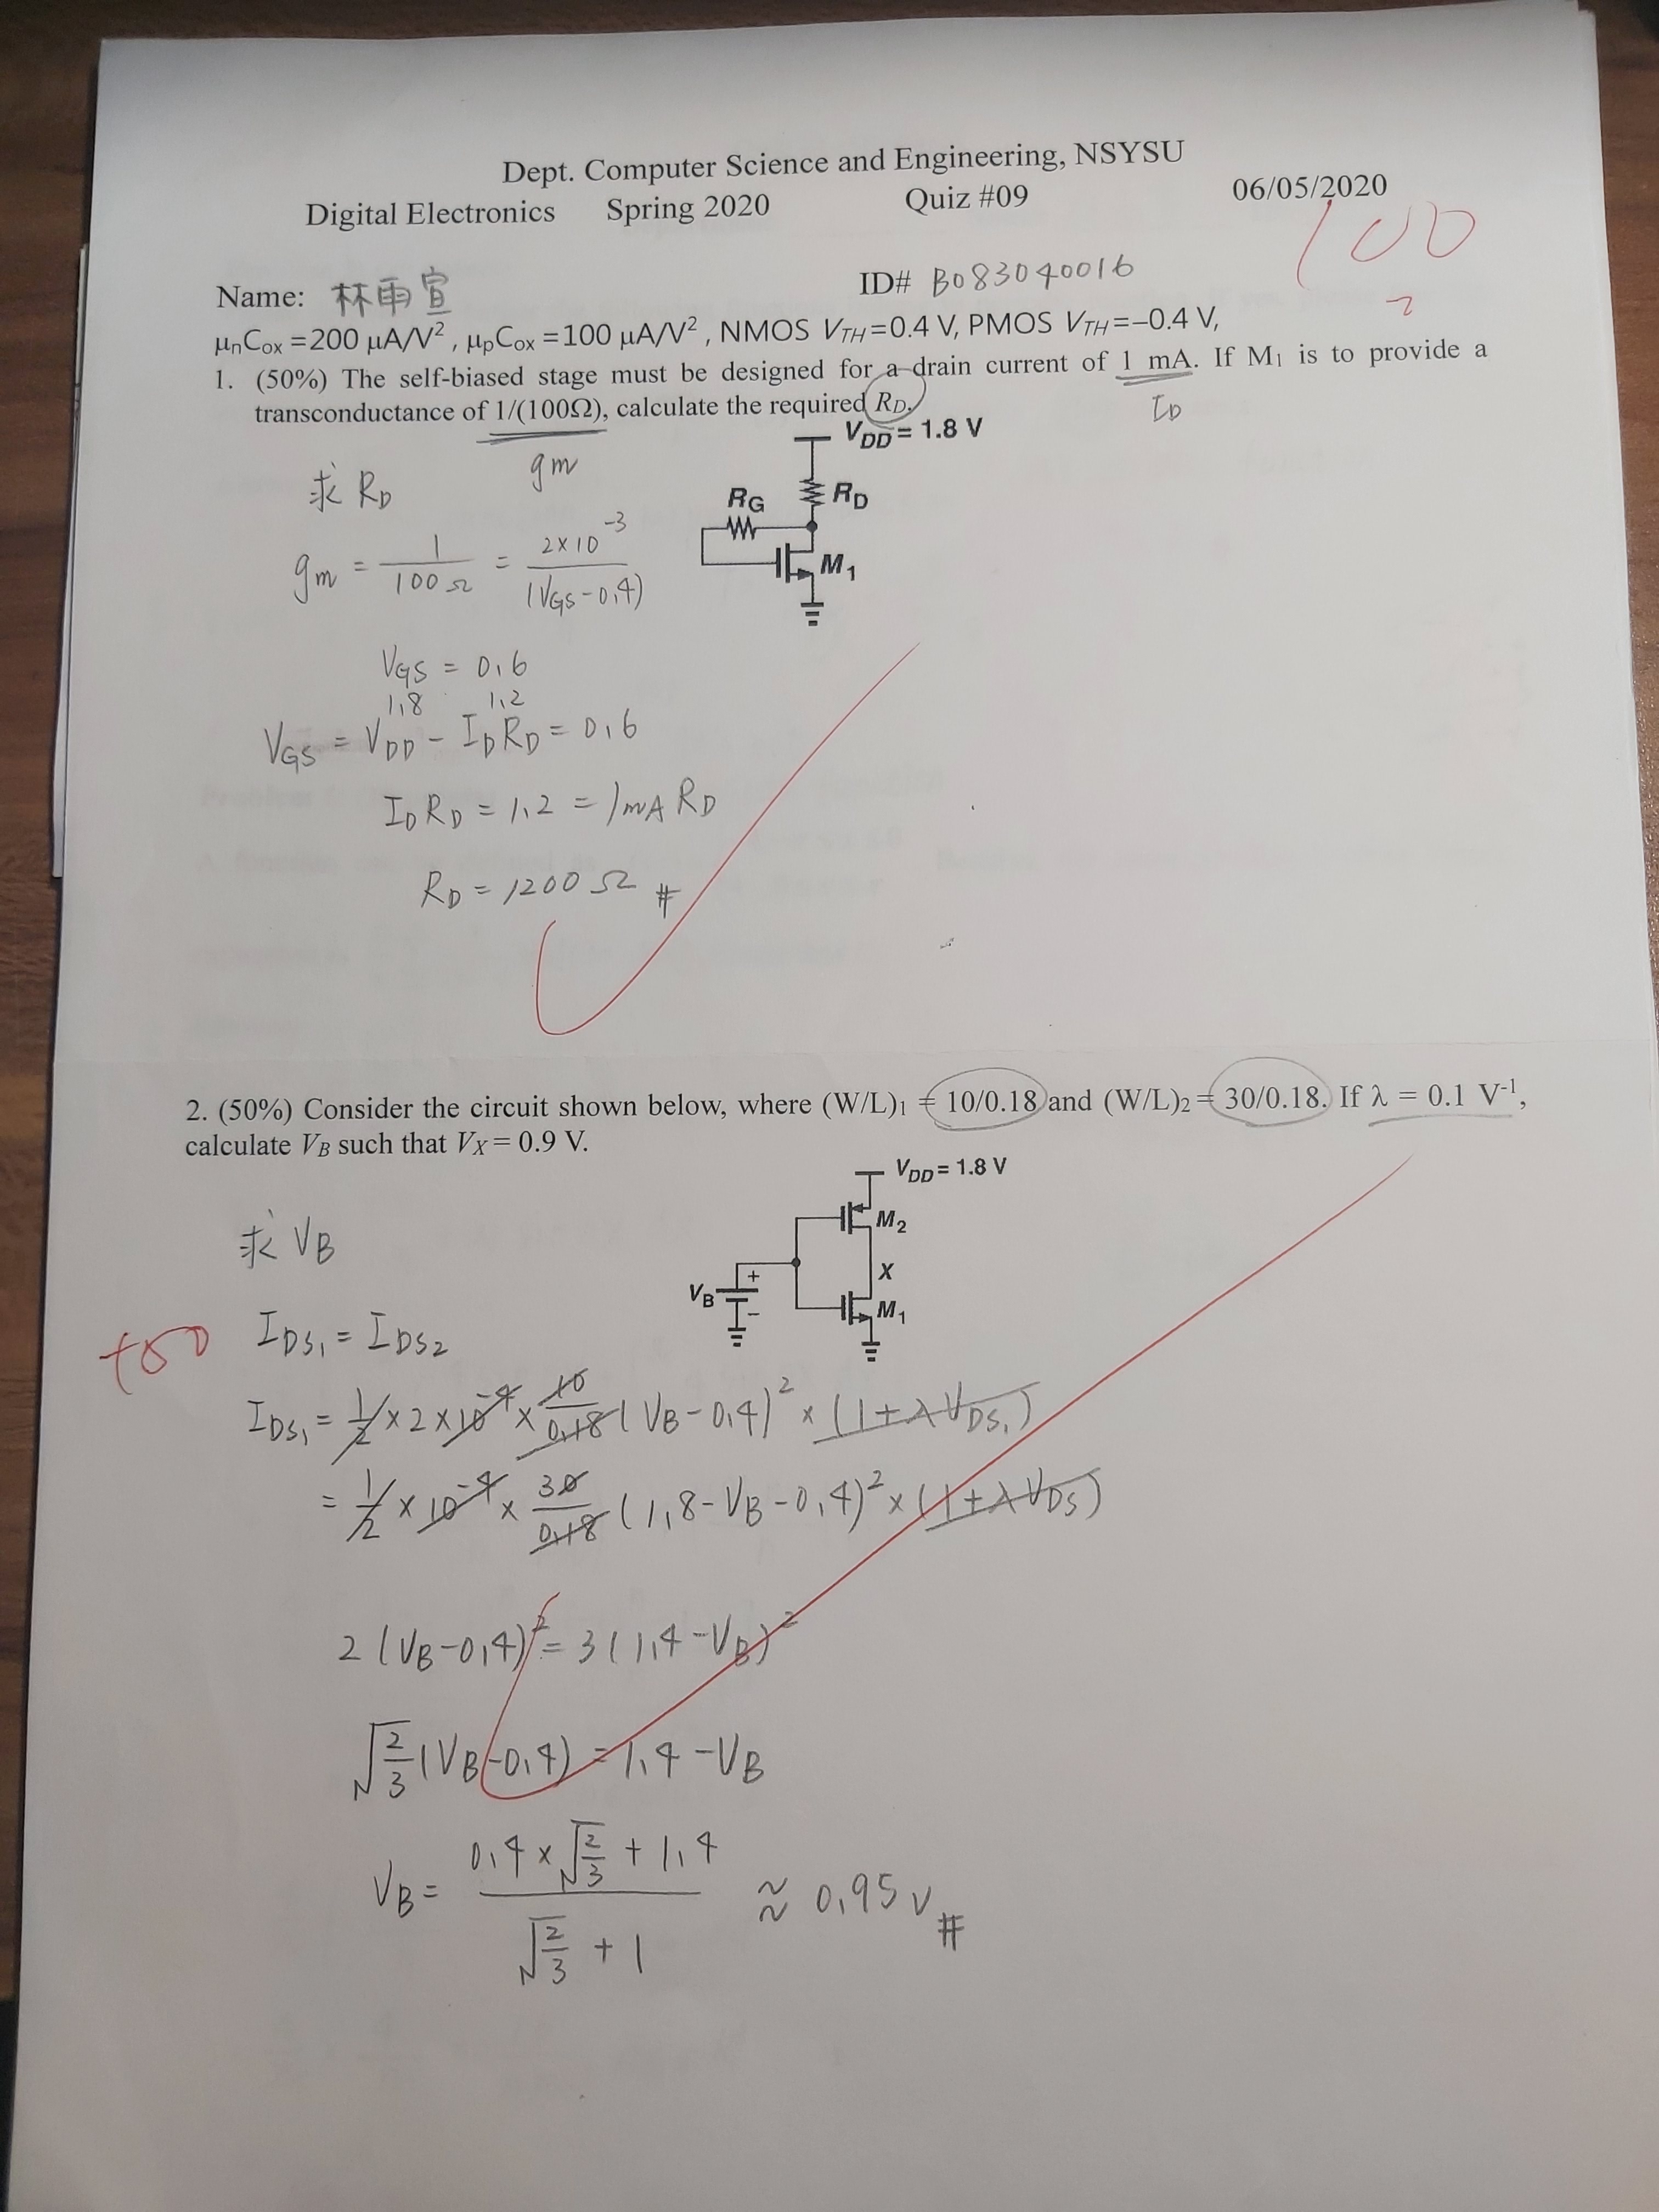 Dept. Computer Science and Engineering, NSYSU
Digital Electronics Spring 2020 Quiz #09 06/05/2020
100
2
Name: 林雨宣 ID# B083040016
μnCox =200 μA/V², μpCox =100 μA/V², NMOS VTH=0.4 V, PMOS VTH=−0.4 V,
1. (50%) The self-biased stage must be designed for a drain current of 1 mA. If M1 is to provide a
transconductance of 1/(100Ω), calculate the required RD.
ID
gm
VDD = 1.8 V
RG
RD
M1
求 RD
gm = 1/100Ω = 2×10^-3/(VGS-0.4)
VGS = 0.6
1.8 1.2
VGS = VDD - IDRD = 0.6
IDRD = 1.2 = 1mA RD
RD = 1200 Ω #
2. (50%) Consider the circuit shown below, where (W/L)1 = 10/0.18 and (W/L)2 = 30/0.18. If λ = 0.1 V-1,
calculate VB such that VX = 0.9 V.
VDD = 1.8 V
M2
X
VB
+
−
M1
求 VB
+50
IDS1 = IDS2
IDS1 = 1/2 × 2 × 10^-4 × 10/0.18 (VB-0.4)² × (1+λVDS1)
= 1/2 × 10^-4 × 30/0.18 (1.8-VB-0.4)² × (1+λVDS)
2(VB-0.4)² = 3(1.4-VB)²
√(2/3) (VB-0.4) = 1.4-VB
VB = (0.4×√(2/3) + 1.4)/(√(2/3) + 1) ≈ 0.95 V #